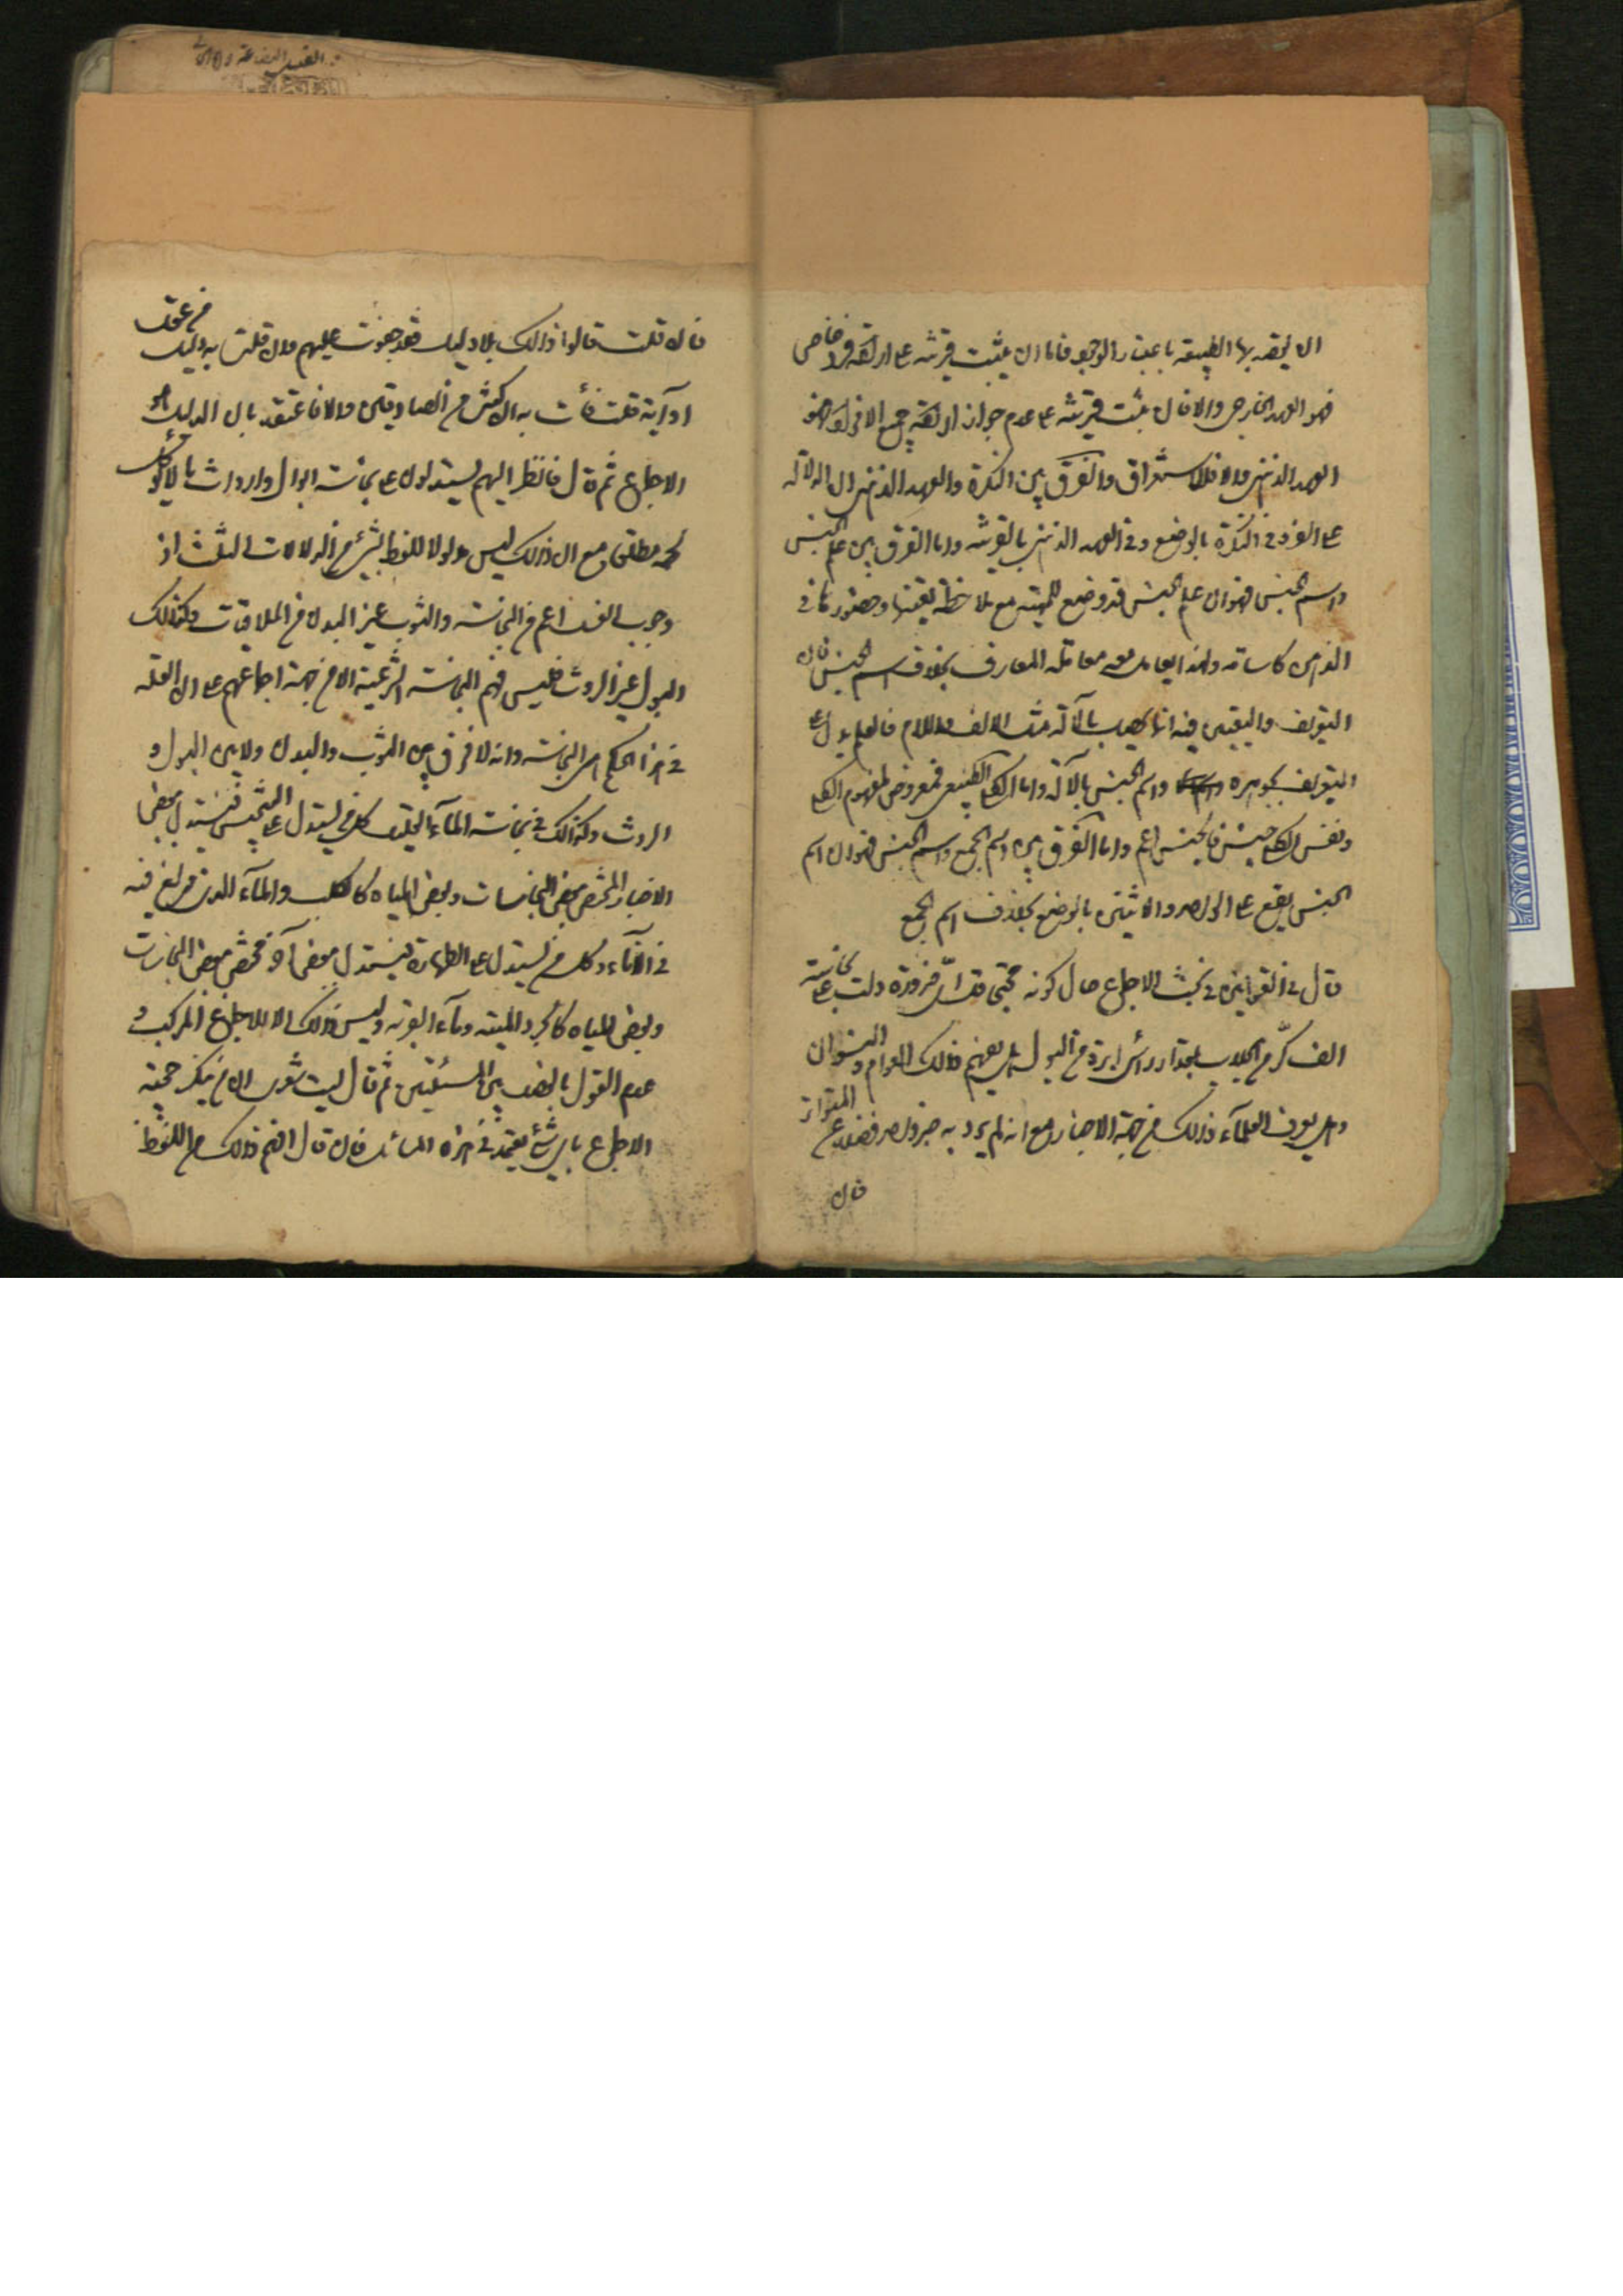 ان يقصد بها الطبيعة باعتبار الوجود فاما ان يثبت قرينة على ارادة فرد خاص
فهو العهد الخارجي والا فان ثبت قرينة على عدم جواز ارادة جميع الافراد فهو
العهد الذهني والا فللاستغراق والفرق بين النكرة والعهد الذهني ان الدلالة
على الفرد في النكرة بالوضع وفي العهد الذهني بالقرينة واما الفرق بين علم الجنس
واسم الجنس فهو ان علم الجنس قد وضع للمهية مع ملاحظة تعينها وحضورها في
الذهن كاسامة ولهذا يعامل معه معاملة المعارف بخلاف اسم الجنس فان
التعريف والتعيين فيه انما يحصل بالآلة مثل الالف واللام فالعلم يدل على
التعريف بجوهره واسم الجنس بالآلة واما الكلي الطبيعي فمعروض لمفهوم الكلي
ونفس الكلي جنس فالجنس اعم واما الفرق بين اسم الجمع واسم الجنس فهو ان اسم
الجنس يقع على الواحد والاثنين بالوضع بخلاف اسم الجمع
قال في القوانين في بحث الاجماع حال كونه محتجا قد اى ضرورة دلت على نجاسة
الف كر من الجلاب بمقدار رأس ابرة من البول هل يفهم ذلك العوام والنسوان
وهل يعرف العلماء ذلك من جهة الاخبار مع انه لم يرد به خبر واحد فضلا عن المتواتر
فان
فان قلت قالوا ذلك بلا دليل فقد جفوت عليهم وان قلت به دليل من عقل
او آية قلت فأت به ان كنت من الصادقين والا فاعتقد بان الدليل هو
الاجماع ثم قال فانظر اليهم يستدلون على نجاسة ابوال وارواث ما لا يؤكل
لحمه مطلقا مع ان ذلك ليس مدلولا للفظ بشئ من الدلالات الثلث اذ
وجوب الغسل اعم من النجاسة والثوب غير البدن من الملاقيات وكذلك
البول غير الروث فليس فهم النجاسة الشرعية الا من جهة اجماعهم على ان العلة
في هذا الحكم هى النجاسة وانه لا فرق بين الثوب والبدن ولا بين البول و
الروث وكذلك في نجاسة الماء القليل كل من يستدل على التنجيس فيستدل ببعض
الاخبار المختص ببعض النجاسات وبعض المياه كالكلب والماء الذى ولغ فيه
في الاناء وكل من يستدل على الطهارة فيستدل ببعض آخر مختص ببعض النجاسات
وبعض المياه كالجرذ الميتة وماء القربة وليس ذلك الا للاجماع المركب و
عدم القول بالفصل بين المسئلتين ثم قال ليت شعرى ان من ينكر حجية
الاجماع باى شئ يعتمد في هذه المسائل فان قال افهم ذلك من اللفظ